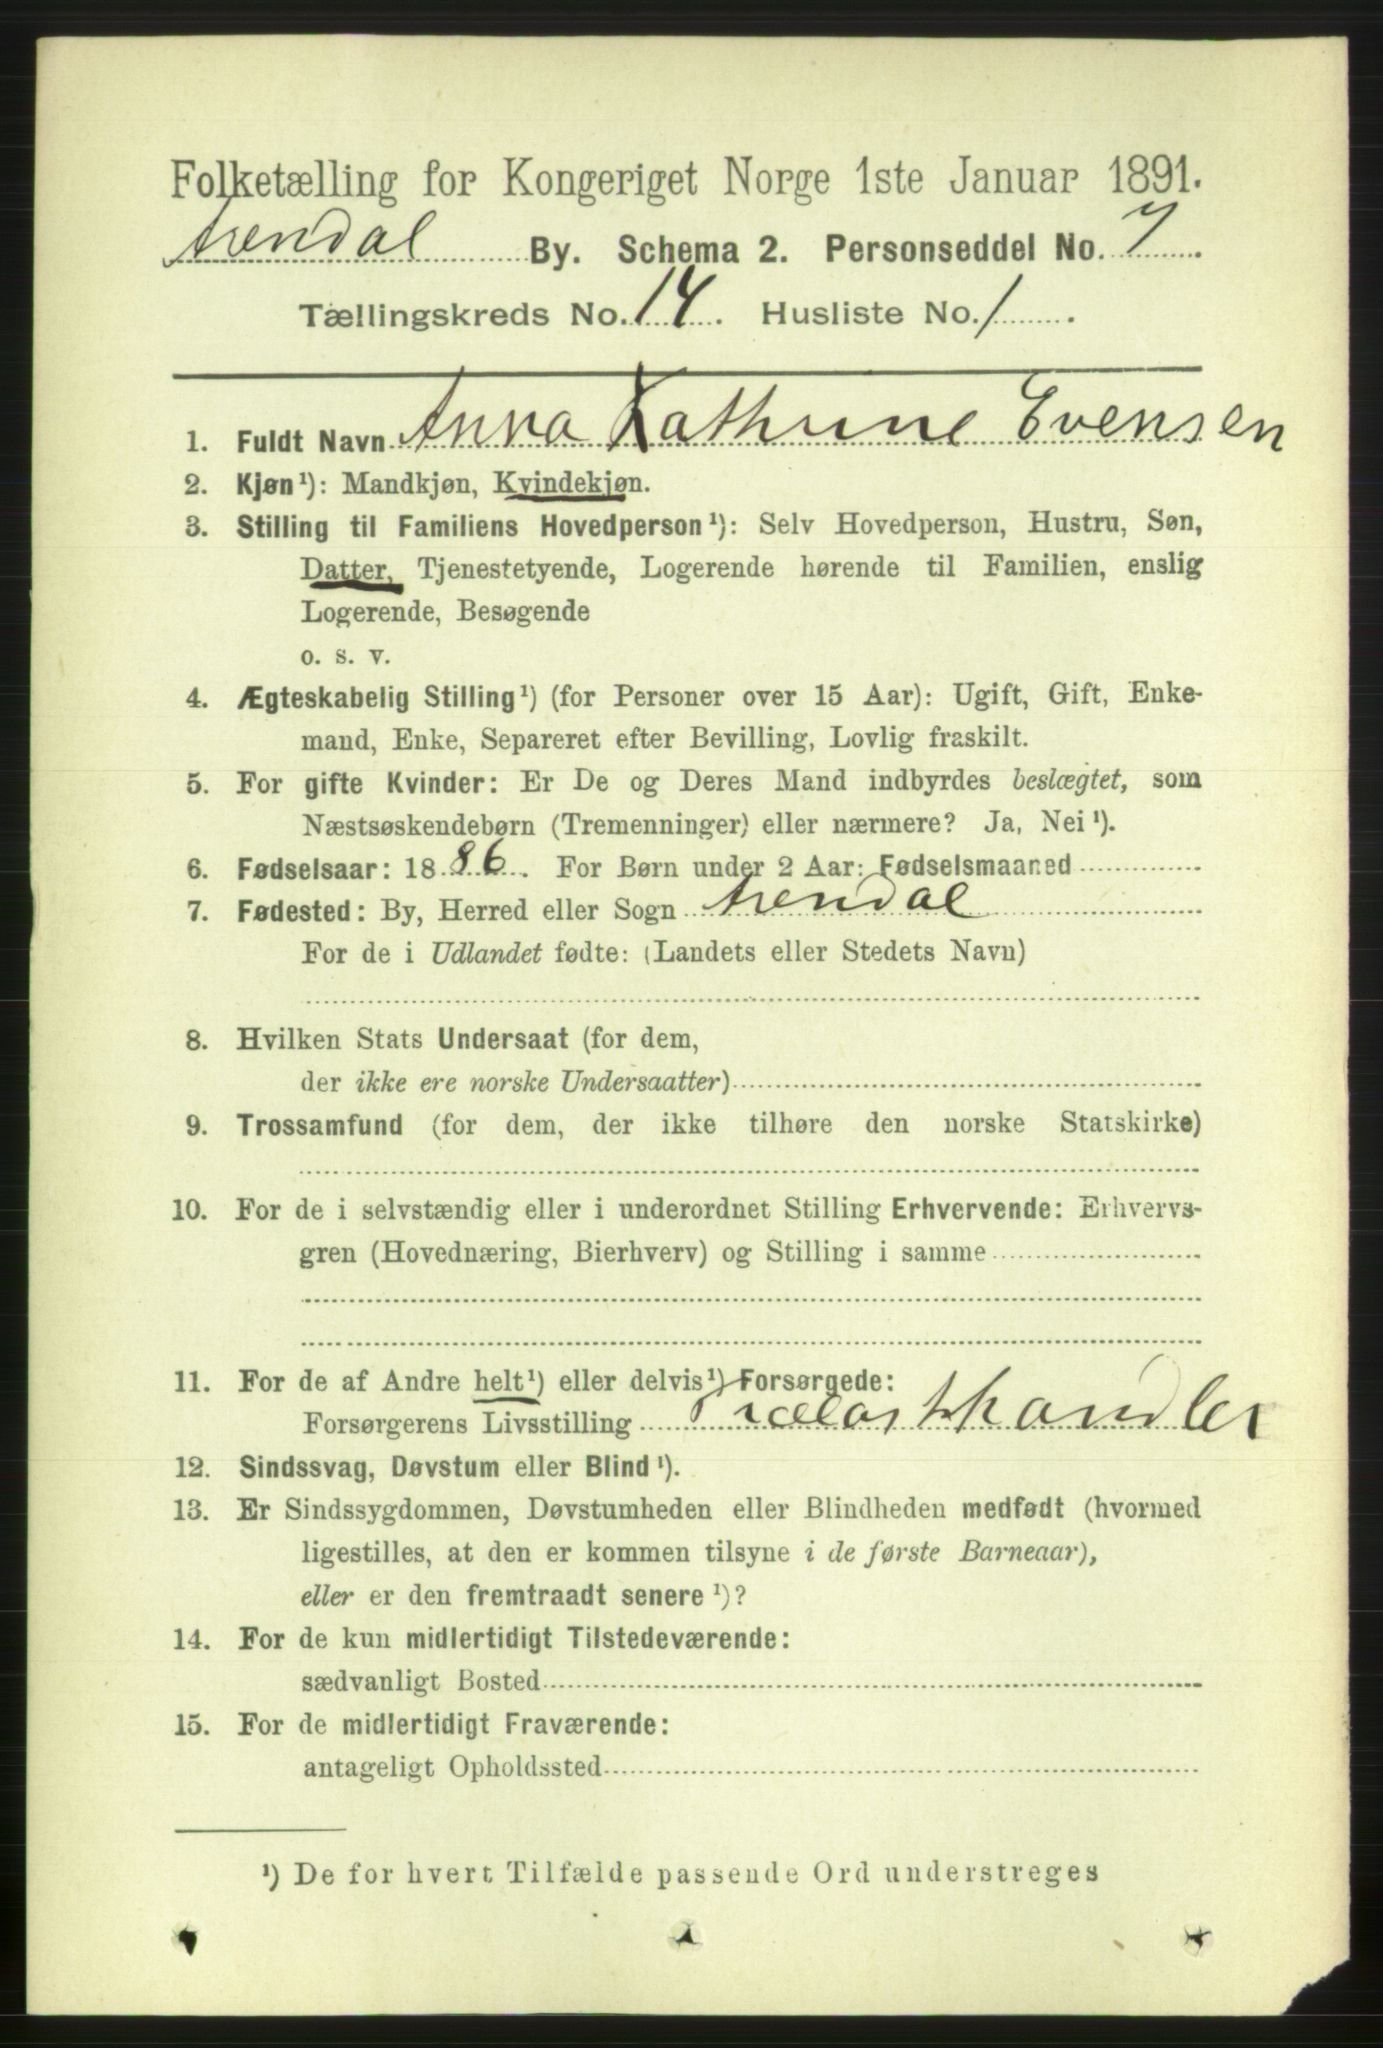 Folketælling for Kongeriget Norge 1ste Januar 1891.
Arendal By. Schema 2. Personseddel No. 7
Tællingskreds No. 14. Husliste No. 1.
1. Fuldt Navn Anna Kathrine Evensen
2. Kjøn¹): Mandkjøn, Kvindekjøn.
3. Stilling til Familiens Hovedperson¹): Selv Hovedperson, Hustru, Søn,
Datter, Tjenestetyende, Logerende hørende til Familien, enslig
Logerende, Besøgende
o. s. v.
4. Ægteskabelig Stilling¹) (for Personer over 15 Aar): Ugift, Gift, Enke-
mand, Enke, Separeret efter Bevilling, Lovlig fraskilt.
5. For gifte Kvinder: Er De og Deres Mand indbyrdes beslægtet, som
Næstsøskendebørn (Tremenninger) eller nærmere? Ja, Nei¹).
6. Fødselsaar: 1886. For Børn under 2 Aar: Fødselsmaaned
7. Fødested: By, Herred eller Sogn Arendal
For de i Udlandet fødte: (Landets eller Stedets Navn)
8. Hvilken Stats Undersaat (for dem,
der ikke ere norske Undersaatter)
9. Trossamfund (for dem, der ikke tilhøre den norske Statskirke)
10. For de i selvstændig eller i underordnet Stilling Erhvervende: Erhvervs-
gren (Hovednæring, Bierhverv) og Stilling i samme
11. For de af Andre helt¹) eller delvis¹) Forsørgede:
Forsørgerens Livsstilling Trælasthandler
12. Sindssvag, Døvstum eller Blind¹).
13. Er Sindssygdommen, Døvstumheden eller Blindheden medfødt (hvormed
ligestilles, at den er kommen tilsyne i de første Barneaar),
eller er den fremtraadt senere¹)?
14. For de kun midlertidigt Tilstedeværende:
sædvanligt Bosted
15. For de midlertidigt Fraværende:
antageligt Opholdssted
¹) De for hvert Tilfælde passende Ord understreges